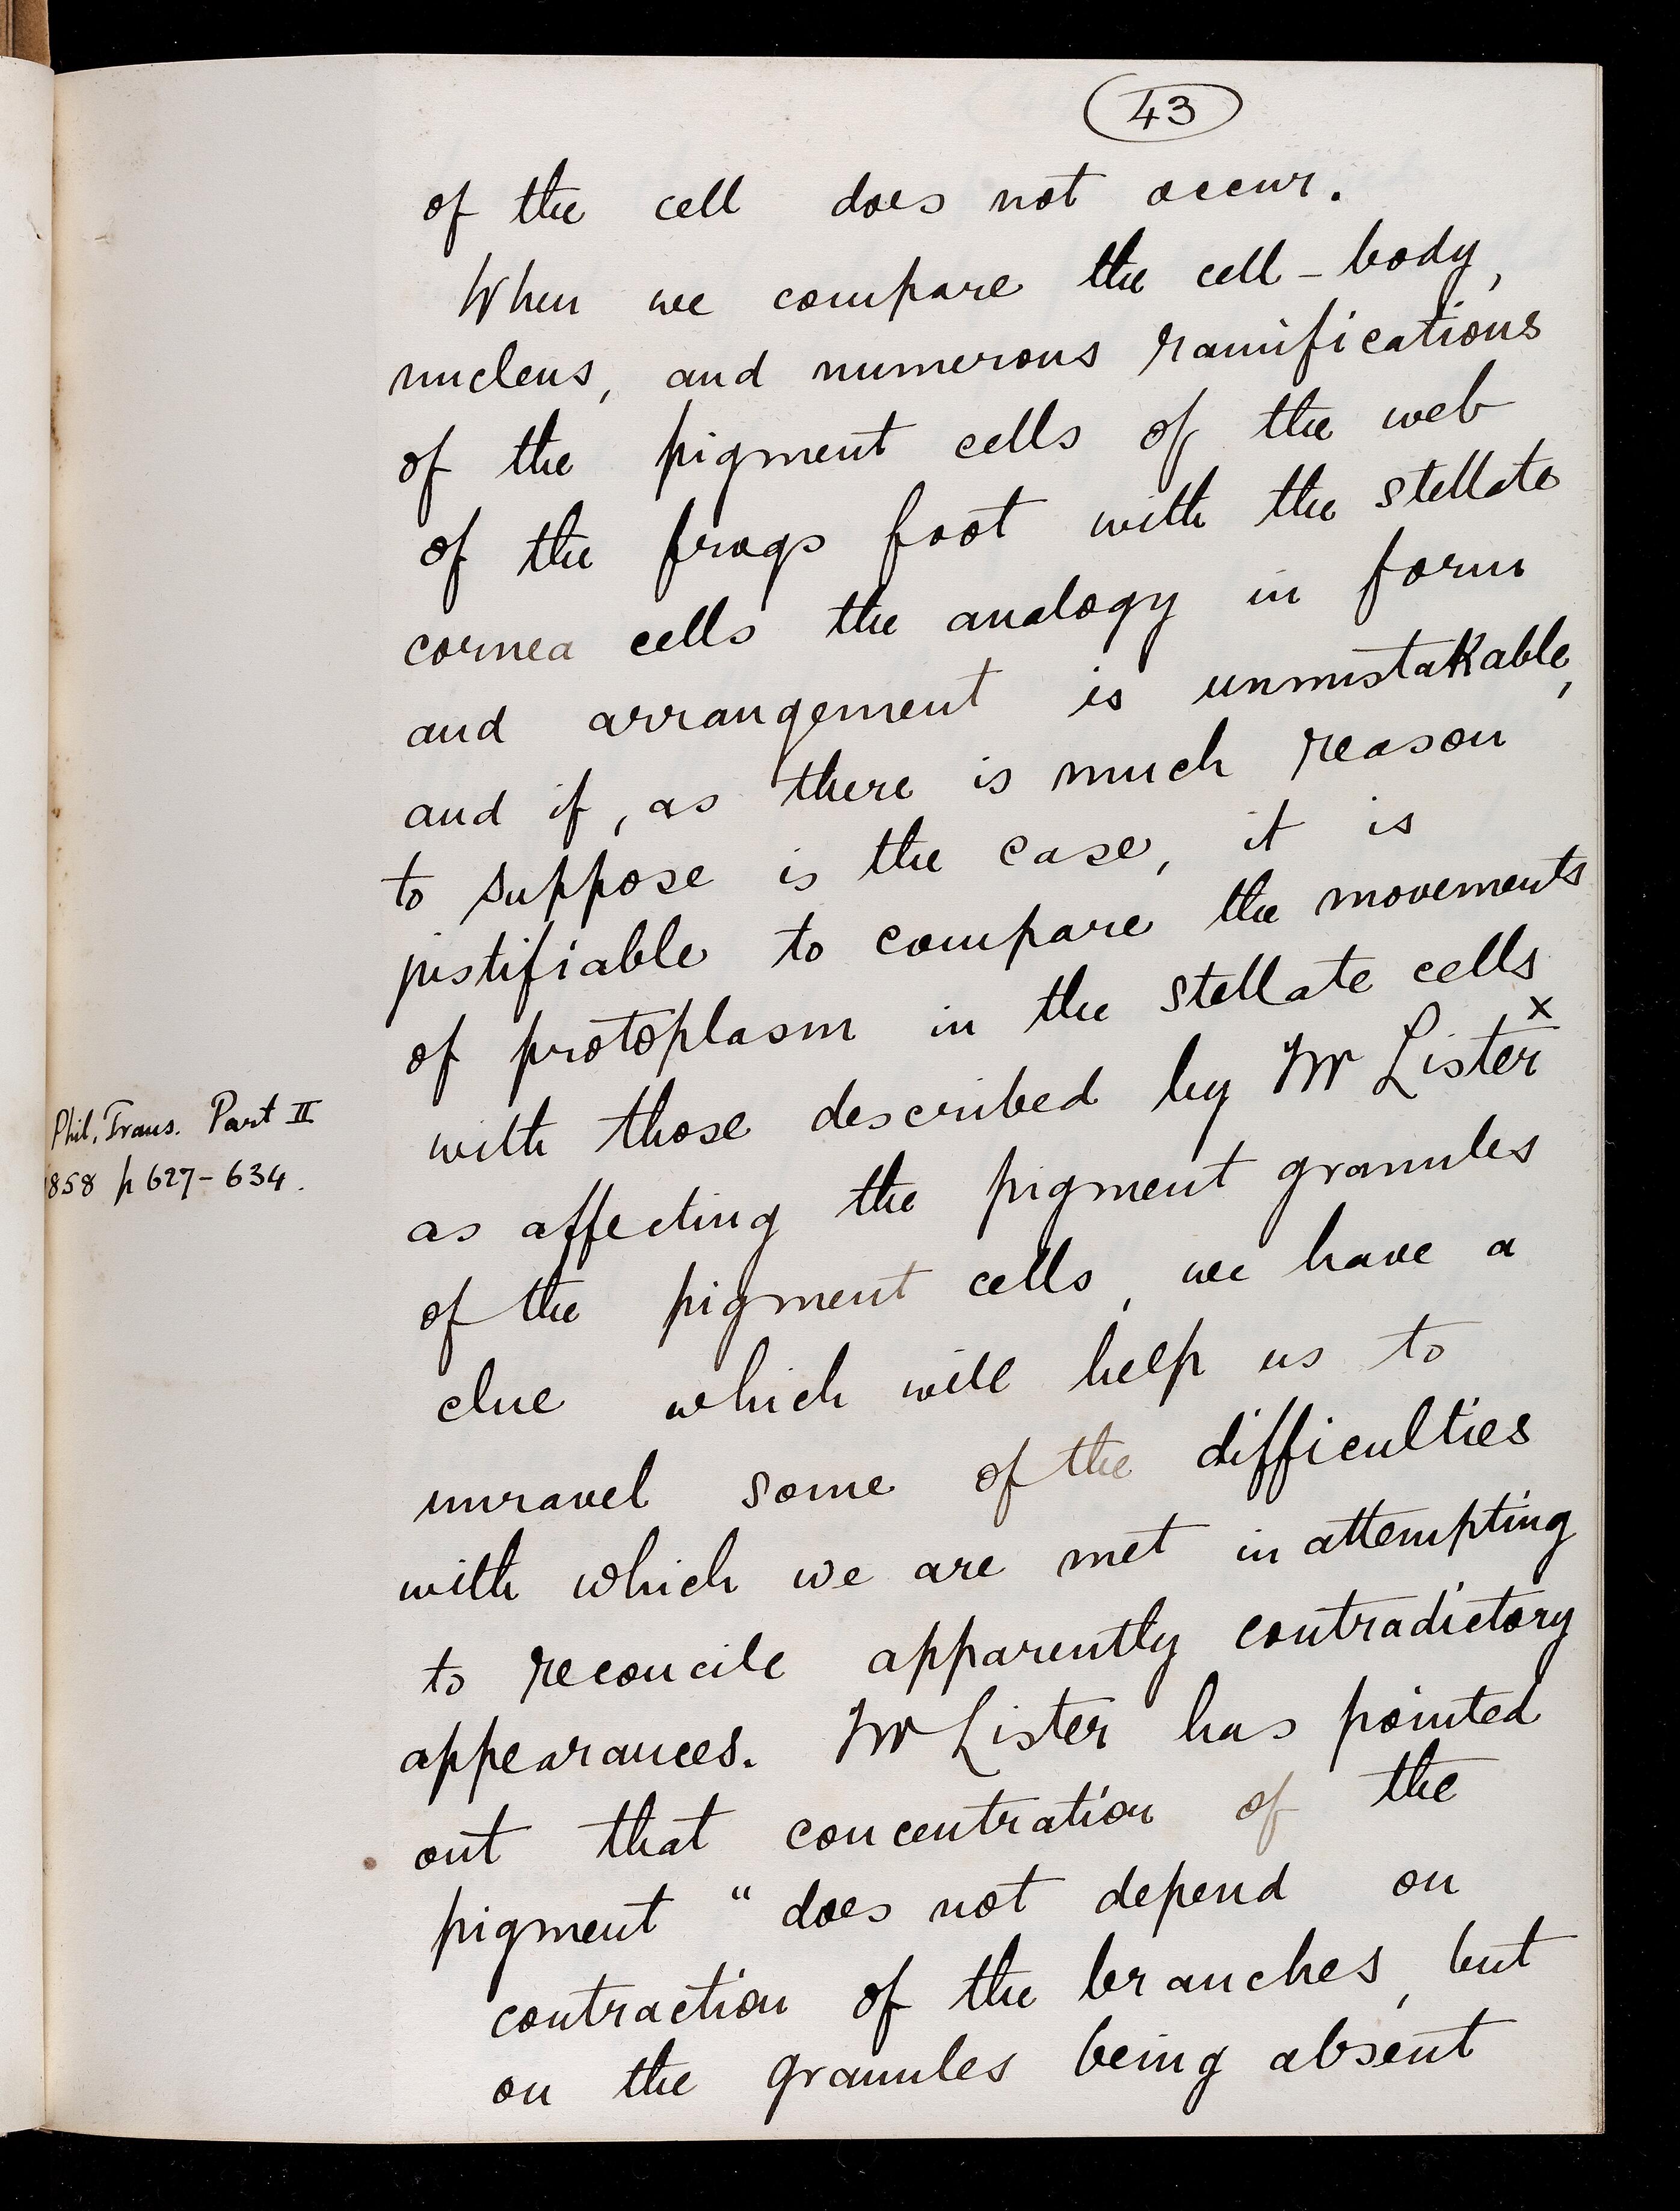 43
of the cell does not occur.
When we compare the cell-body,
nucleus, and numerous ramifications
of the pigment cells of the web
of the frogs foot with the stellate
cornea cells the analogy in form
and arrangement is unmistakable,
and if, as there is much reason
to suppose is the case, it is
justifiable to compare the movements
of protoplasm in the stellate cells
with those described by Mr Lister x
Phil. Trans. Part II
1858 p 627-634.
as affecting the pigment granules
of the pigment cells, we have a
clue which will help us to
unravel some of the difficulties
with which we are met in attempting
to reconcile apparently contradictory
appearances. Mr Lister has pointed
out that concentration of the
pigment "does not depend on
contraction of the branches, but
on the granules being absent